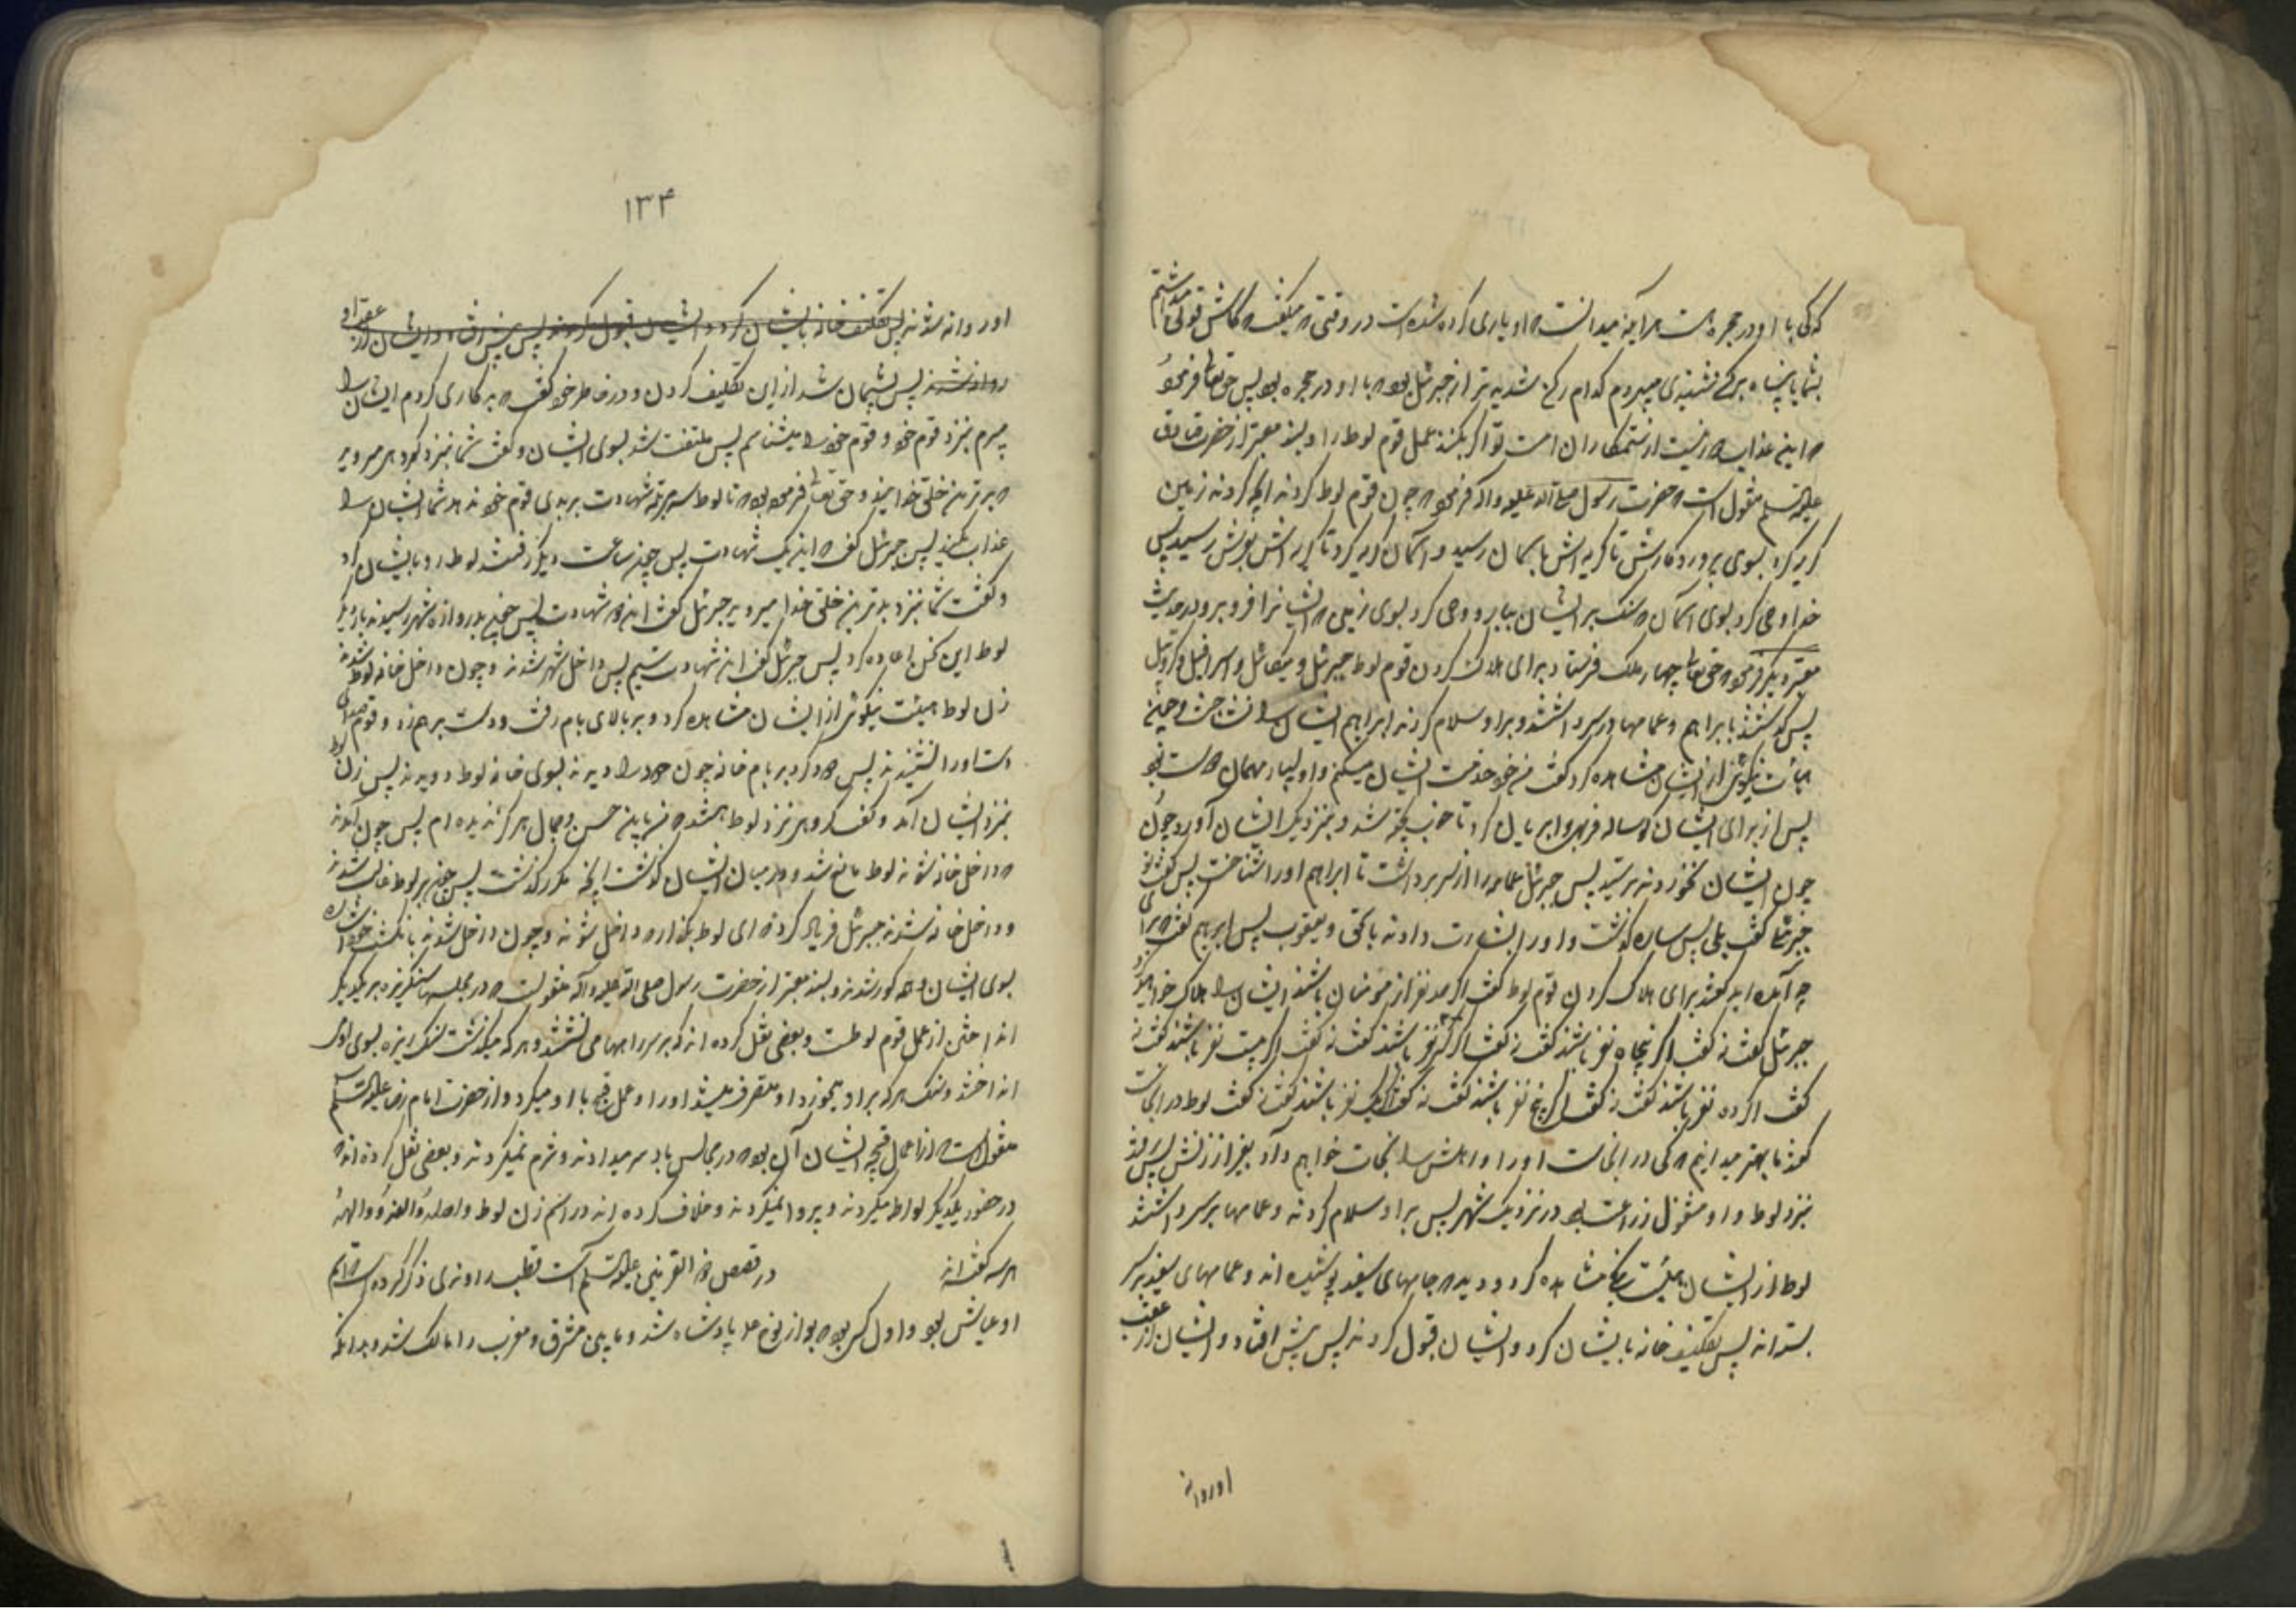 که کی با او در حجره است هرآینه میدانست که او یاری کرده شده است در وقتی که میگفت که کاش قوتی میداشتم
بشما یا پناه برکن شدیدی میبردم کدام رکن شدیدتر از جبرئیل بود که با او در حجره بود پس حقتعالی فرمود
که این عذاب دور نیست از ستمکاران امت تو اگر بکنند عمل قوم لوط را و بسند معتبر از حضرت صادق
علیه السلام منقول است که حضرت رسول صلی الله علیه و آله فرمود که چون قوم لوط کردند آنچه کردند زمین
گریه کرد بسوی پروردگارش تا گریه‌اش بآسمان رسید و آسمان گریه کرد تا گریه‌اش بعرش رسید پس
خدا وحی کرد بسوی آسمان که سنگ بر ایشان ببار و وحی کرد بسوی زمین که ایشانرا فرو برو در حدیث
معتبر دیگر فرمود که حقتعالی چهار ملک فرستاد برای هلاک کردن قوم لوط جبرئیل و میکائیل و اسرافیل و کروبیل
پس گذشتند بابراهیم و عمامها در سر داشتند و بر او سلام کردند ابراهیم ایشان را نشناخت و چون
هیأت نیکوئی از ایشان مشاهده کرد گفت من خود خدمت ایشان میکنم و او بسیار مهمان دوست بود
پس از برای ایشان گوساله فربهی را بریان کرد تا خوب پخته شد و بنزدیک ایشان آورد چون
چون ایشان نخوردند ترسید پس جبرئیل عمامه را از سر برداشت تا ابراهیم او را شناخت پس گفت توئی
جبرئیل گفت بلی پس ساره گذشت و او را بشارت دادند باسحق و یعقوب پس ابراهیم گفت که برای
چه آمده‌اید گفتند برای هلاک کردن قوم لوط گفت اگر صد نفر از مؤمنان باشند ایشان را هلاک خواهید کرد
جبرئیل گفت نه گفت اگر پنجاه نفر باشند گفت نه گفت اگر سی نفر باشند گفت نه گفت اگر بیست نفر باشند گفت نه
گفت اگر ده نفر باشند گفت نه گفت اگر پنج نفر باشند گفت نه گفت اگر یک نفر باشند گفت نه گفت لوط در آنجاست
گفتند ما بهتر میدانیم که کی در آنجاست او را و اهلش را نجات خواهیم داد بغیر از زنش پس رفتند
بنزد لوط و او مشغول زراعت بود در نزدیک شهر پس بر او سلام کردند و عمامها بر سر داشتند
لوط از ایشان هیئت نیکو مشاهده کرد و دید که جامهای سفید پوشیده‌اند و عمامهای سفید بر سر
بسته‌اند پس تکلیف خانه بایشان کرد و ایشان قبول کردند پس پیش افتاد و ایشان از عقب
او روانه
۱۳۴
او روانه شدند پس تکلیف خانه بایشان کرد و ایشان قبول کردند پس پیش افتاد و ایشان از عقب او
روانه شدند پس پشیمان شد از این تکلیف کردن و در خاطر خود گفت که بد کاری کردم ایشان را
میبرم بنزد قوم خود و قوم خود را میشناسم پس ملتفت شد بسوی ایشان و گفت شما بنزد گروهی میروید
که بدترین خلق خدایند و حق تعالی فرموده بود که تا لوط سه مرتبه شهادت بر بدی قوم خود ندهد شما ایشان را
عذاب مکنید پس جبرئیل گفت که این یک شهادت پس چون ساعت دیگر رفتند لوط رو بایشان کرد
و گفت شما بنزد بدترین خلق خدا میروید جبرئیل گفت این دو شهادت پس چون بدروازه شهر رسیدند باز دیگر
لوط این سخن را اعاده کرد پس جبرئیل گفت این شهادت سیم پس داخل شهر شدند و چون داخل خانه لوط شدند
زن لوط هیئت نیکوئی از ایشان مشاهده کرد و بر بالای بام رفت و دست بر هم زد و قوم صدای
دست او را نشنیدند پس دود کرد بر بام خانه چون دود را دیدند بسوی خانه لوط دویدند پس زن لوط
بنزد ایشان آمد و گفت گروهی نزد لوط هستند که من باین حسن و جمال هرگز ندیده‌ام پس چون آمدند
که داخل خانه شوند لوط مانع شد و در میان ایشان گذشت آنچه مکرر گذشت پس چون بر لوط غالب شدند
و داخل خانه شدند جبرئیل فریاد کرد که ای لوط بگذار که داخل شوند و چون داخل شدند بانگشت خود اشاره
بسوی ایشان کرد همه کور شدند و بسند معتبر از حضرت رسول صلی الله علیه و آله منقولست که در مجلسها سنگریزه بر یکدیگر
انداختن از عمل قوم لوطست و بعضی نقل کرده‌اند که بر سر راهها می نشستند و هر که میگذشت سنگ ریزه بسوی او می
انداختند و سنگ هر که بر او میخورد او متصرف میشد او را و عمل قبیح با او میکرد و از حضرت امام رضا علیه السلام
منقول است که از اعمال قبیحه ایشان آن بود که در مجالس باد سر میدادند و شرم نمیکردند و بعضی نقل کرده‌اند که
در حضور یکدیگر لواط میکردند و پروا نمیکردند و خلاف کرده‌اند در اسم زن لوط واهله و والعه و والهه
هر سه گفته‌اند در قصص ذو القرنین علیه السلام است قطب راوندی ذکر کرده است که اسم
او عیاش بود و اول کسی بود که بعد از نوح ع پادشاه شد و مابین مشرق و مغرب را مالک شد و بدانکه